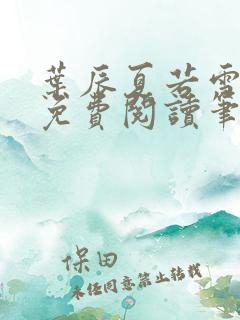 葉辰夏若雪
免費閱讀筆
保田
未經同意禁止轉載